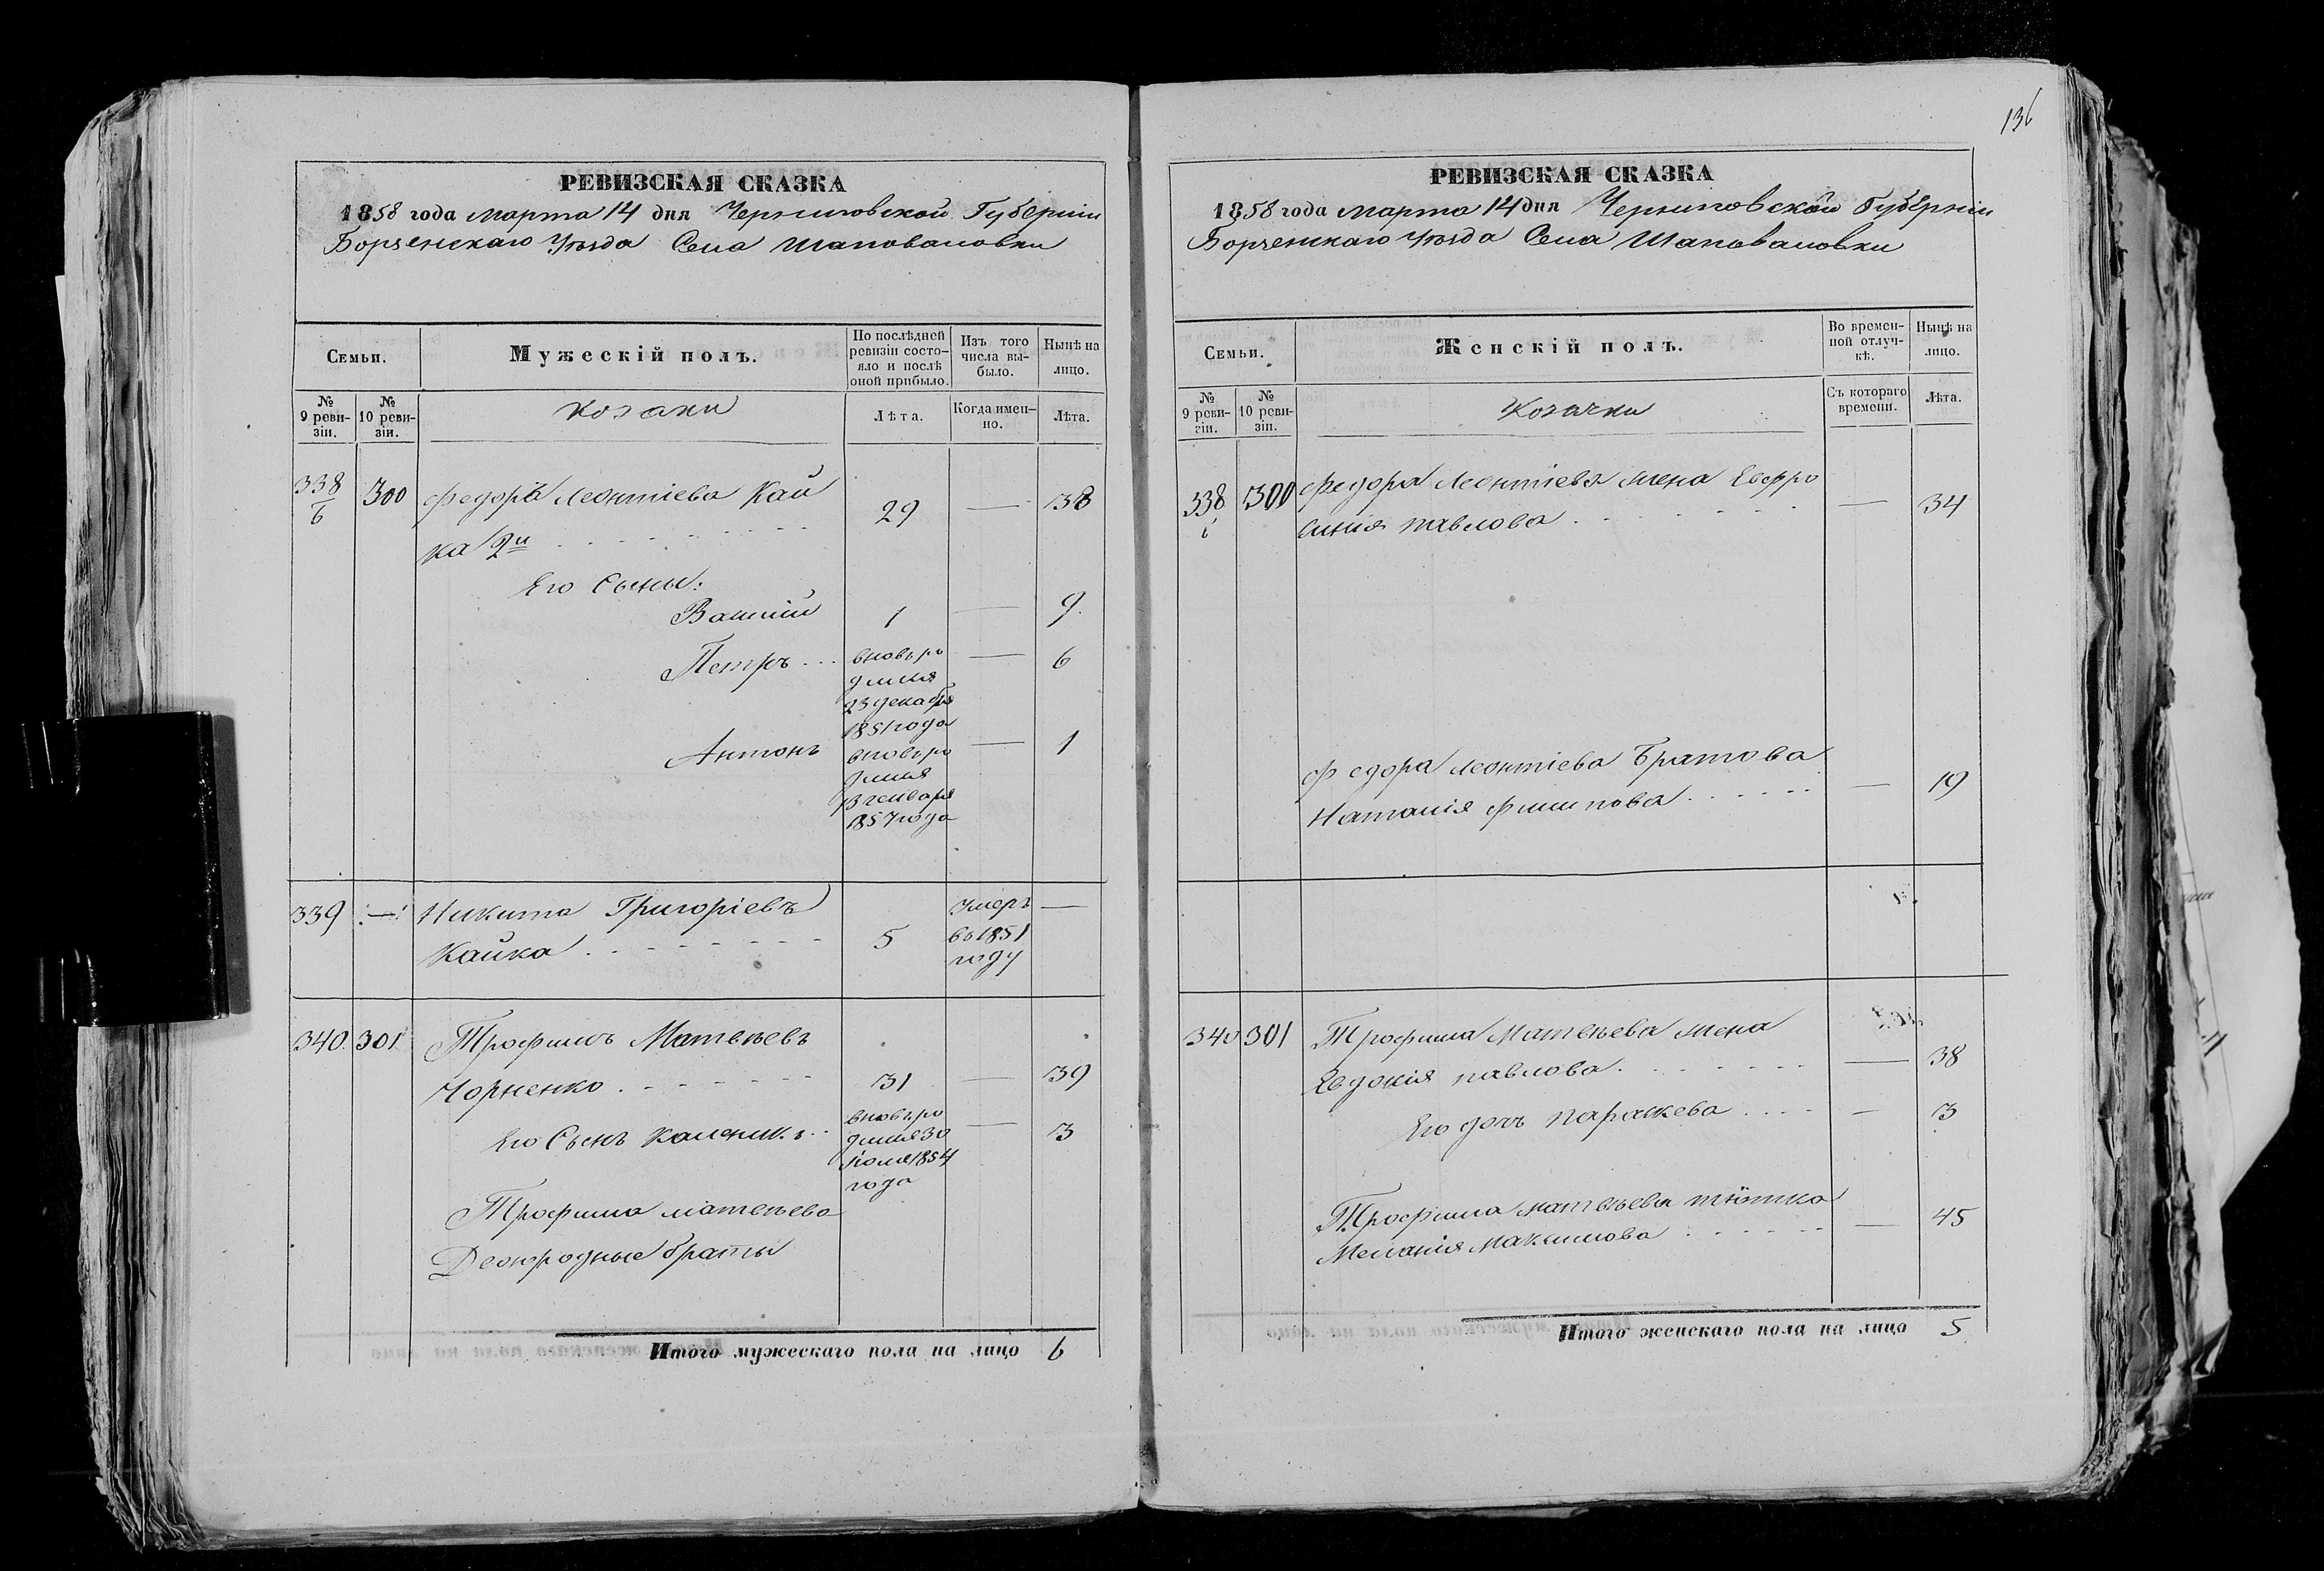 РЕВИЗСКАЯ СКАЗКА
1858 года марта 14 дня Черниговской Губерніи
Борзенскаго Уѣзда Села Шаповаловки
Семьи.
Мужескій полъ.
По послѣдней ревизіи состояло и послѣ оной прибыло.
Изъ того числа выбыло.
Нынѣ на лицо.
№ 9 ревизіи.
№ 10 ревизіи.
Козаки
Лѣта.
Когда именно.
Лѣта.
338/б 300 Федоръ Леонтіева Кай
ка 2й 29 — 38
Его Сыны:
Василій 1 — 9
Петръ вновь ро — 6
дился
23 декабря
1851 года
Антонъ вновь ро — 1
дился
13 генваря
1857 года
339 — Никита Григоріевъ умеръ —
Кайка 5 въ 1851
году
340 301 Трофимъ Матвѣевъ
Чорненко 31 — 39
Его Сынъ Каленикъ вновь ро — 3
дился 30
Іюля 1854
года
Трофима матвѣева
Двоюродные браты
Итого мужескаго пола на лицо 6
136
РЕВИЗСКАЯ СКАЗКА
1858 года марта 14 дня Черниговской Губерніи
Борзенскаго Уѣзда Села Шаповаловки
Семьи.
Женскій полъ.
Во временной отлучкѣ.
Нынѣ на лицо.
№ 9 ревизіи.
№ 10 ревизіи.
Козачки
Съ котораго времени.
Лѣта.
338 300 Федора Леонтіева жена Евфро
синія павлова — 34
Федора леонтіева Братова
Наталія Филипова — 19
340 301 Трофима Матвѣева жена
Евдокія павлова — 38
Его дочь параскева — 3
Трофима матвѣева тіотка
Меланія Максимова — 45
Итого женскаго пола на лицо 5